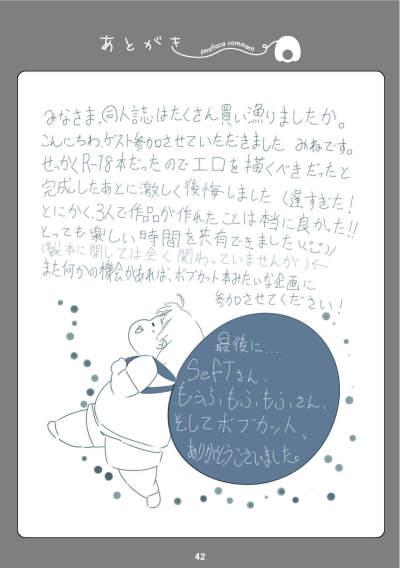 あとがき
postface comment
みなさま、同人誌はたくさん買い漁りましたか。
こんにちわ、ゲスト参加させていただきました みねです。
せっかくR-18本だったのでエロを描くべきだったと
完成したあとに激しく後悔しました(遅すぎた!
とにかく、3人で作品が作れたことは本当に良かった!!
とっても楽しい時間を共有できました\(^^)/
(製本に関しては全く関わっていませんが)←
また何かの機会があれば、ボブカット本みたいな企画に
参加させてください!
最後に....
SefTさん、
もうふもふもふさん、
そしてボブカット、
ありがとうございました。
42